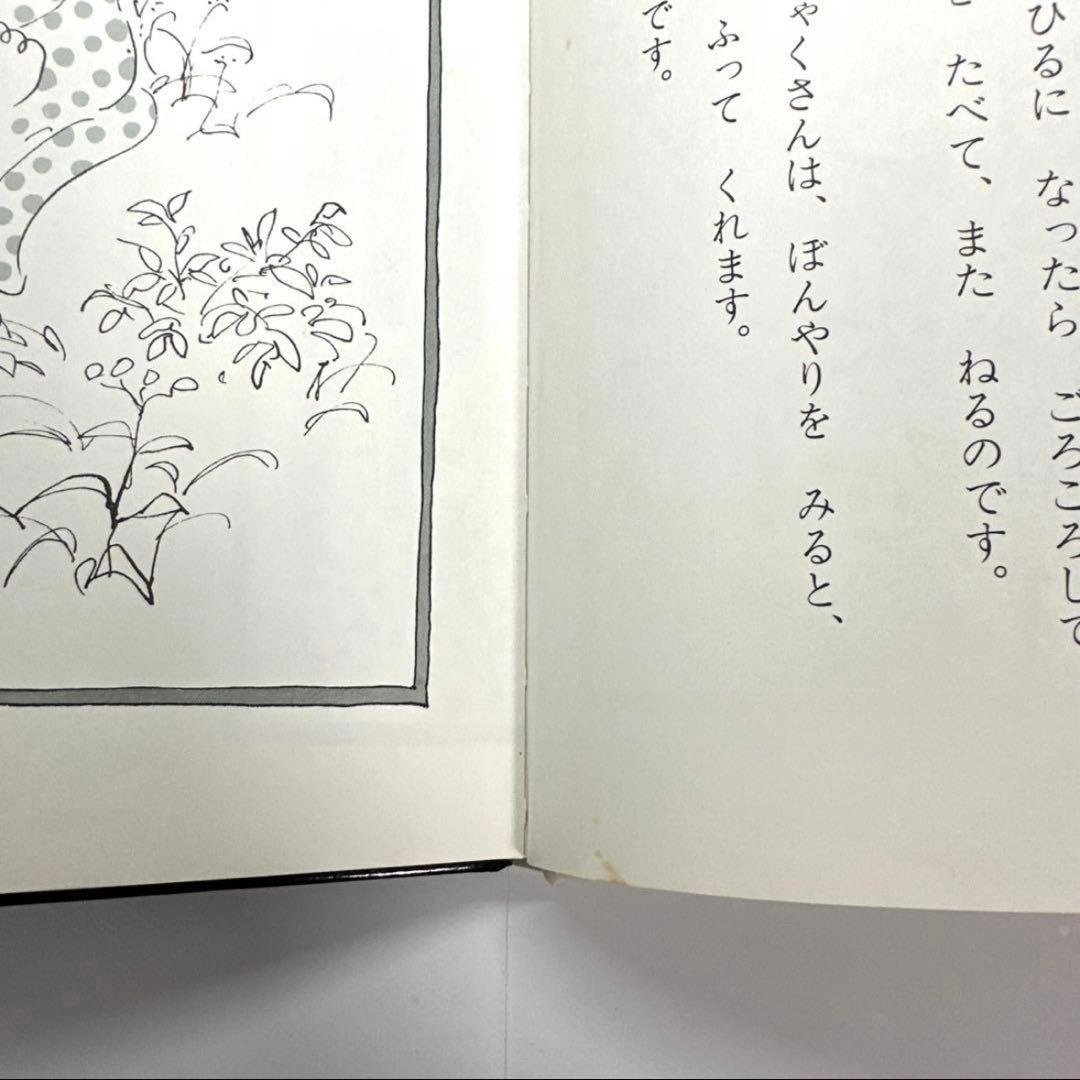 ひるに なったら ごろごろして
たべて、また ねるのです。
ゃくさんは、ぼんやりを みると、
ふって くれます。
です。